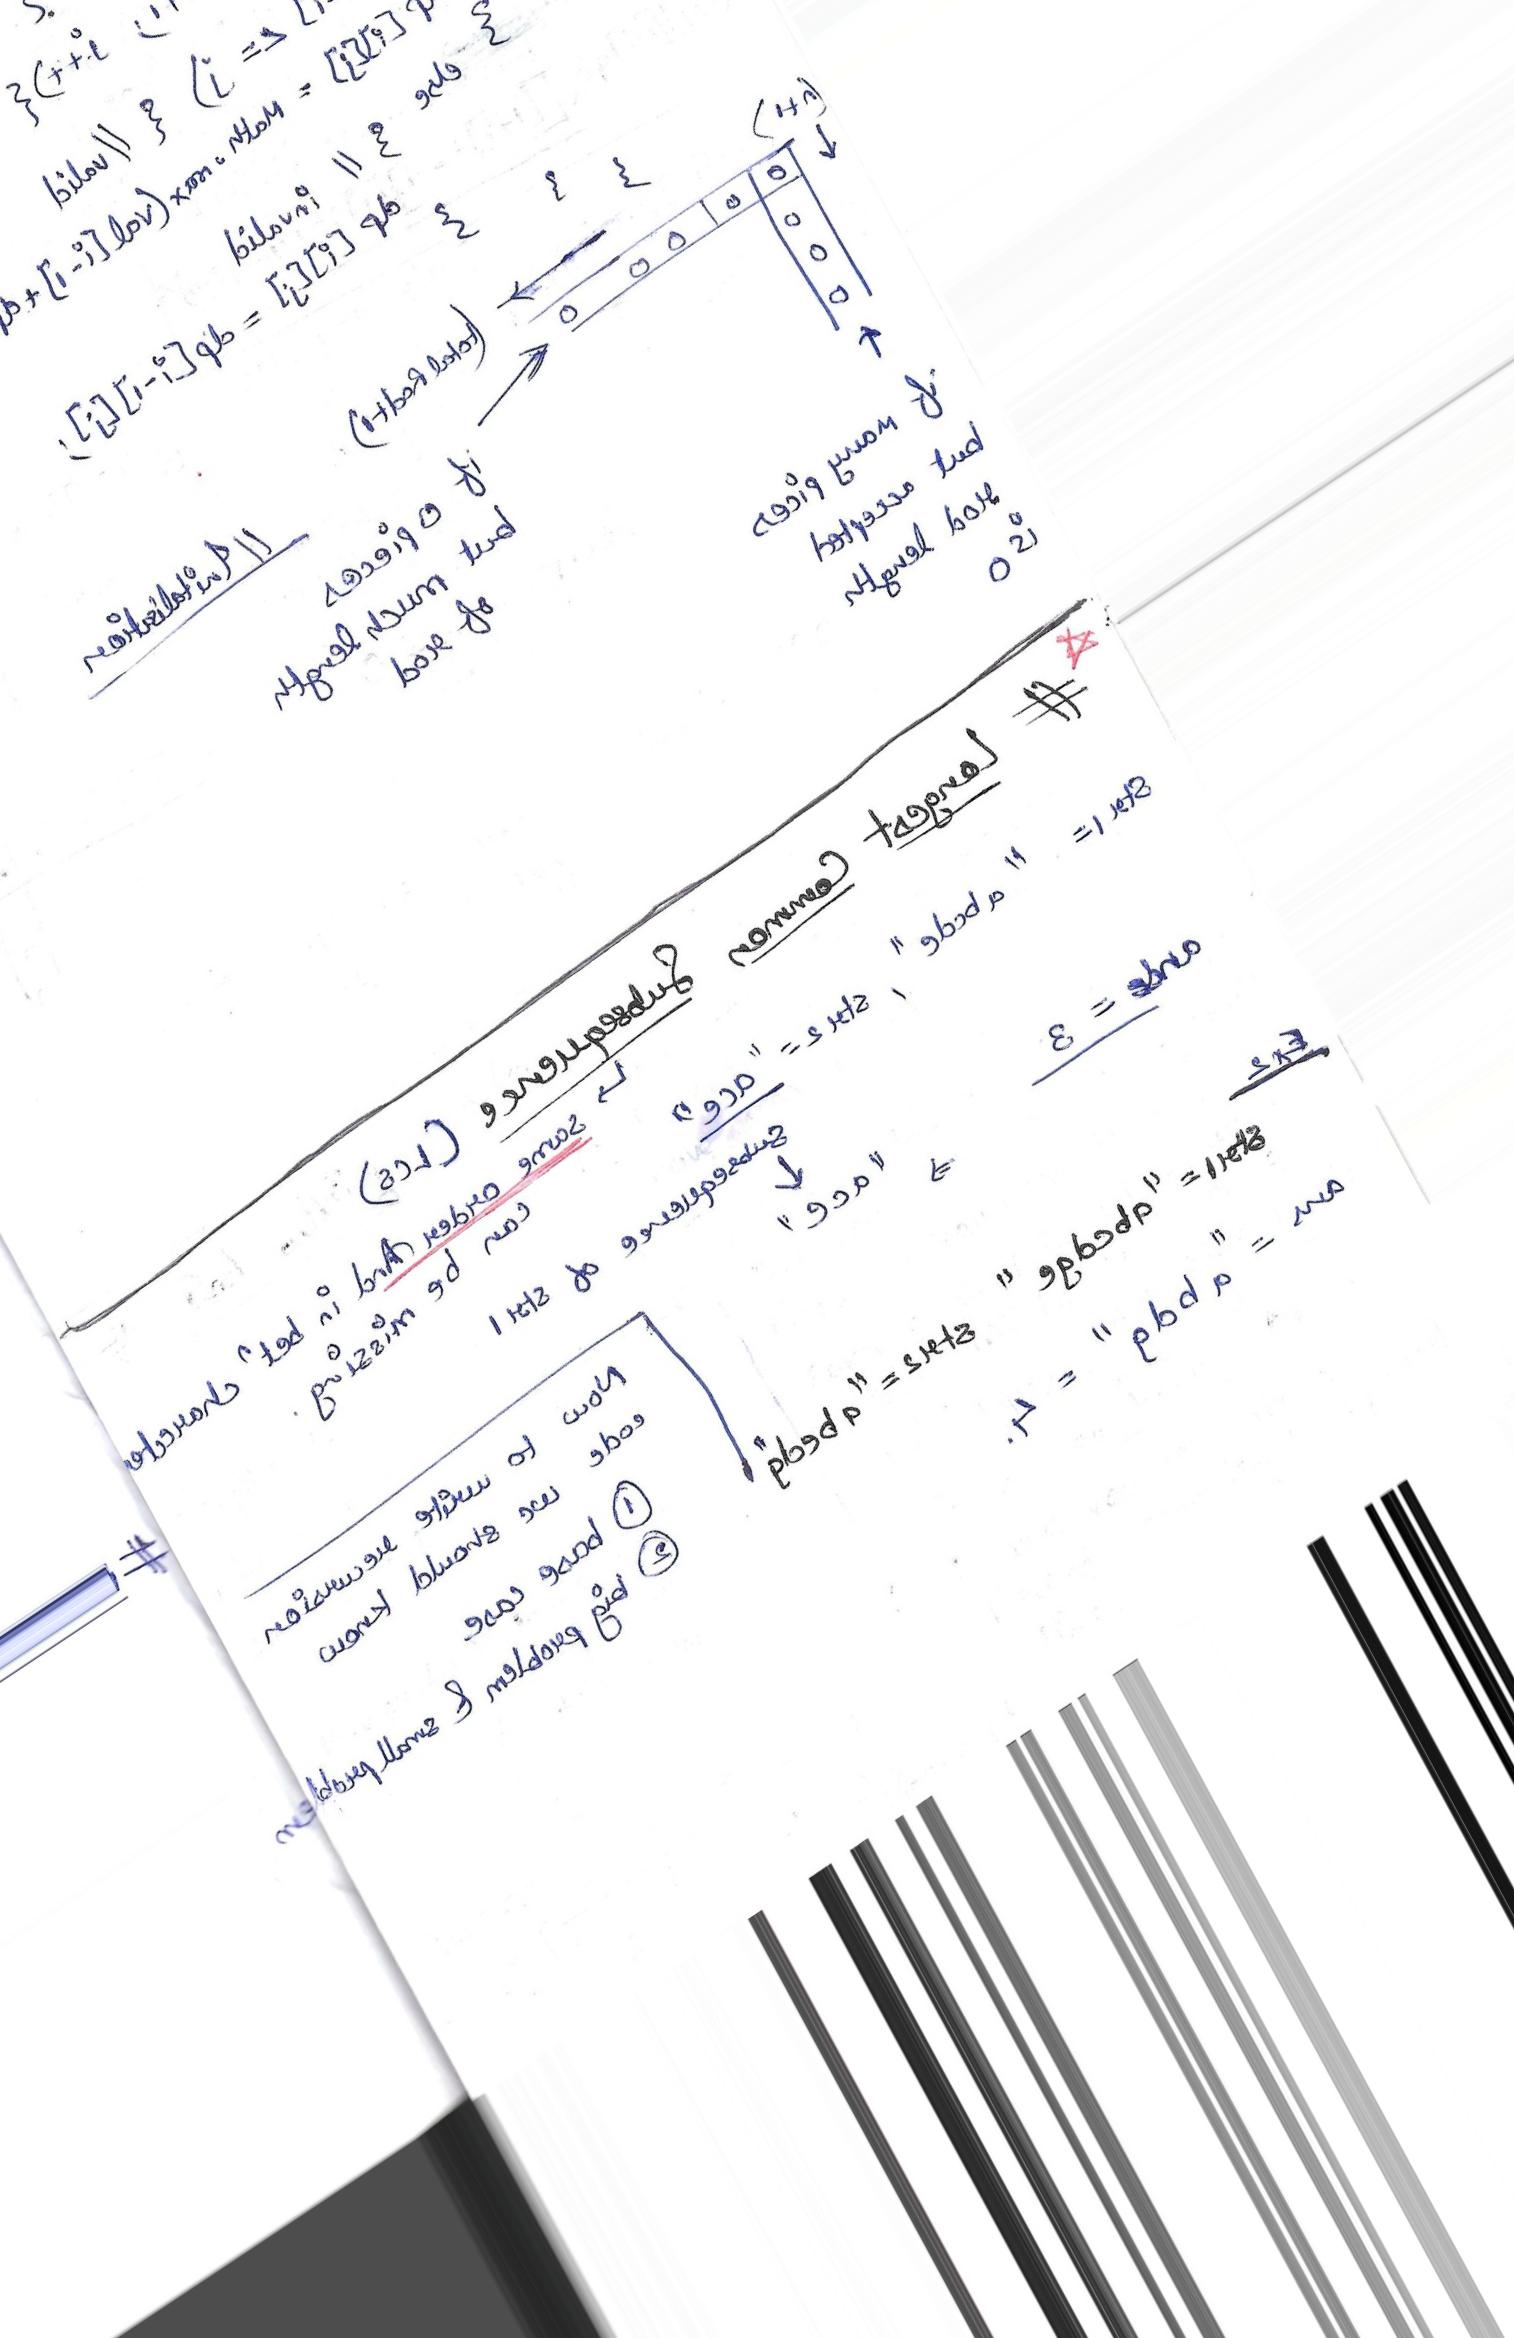 i++){
(i <= j
} // valid
= Math.max(val[i-1]+dp
dp[i][j]
} else
} // invalid
dp[i][j] = dp[i-1][j];
}
}
}
// Initialization
(total Rod+1)
(n+1)
0 0 0 0 0
0
0
0
if 0 pieces
but much length
of rod
if many pieces
but accepted
rod length
is 0
# Longest Common Subsequence (LCS)
↳ same order And in bet" character
can be missing.
str1 = "abcdge", str2 = "ace"
subsequence of str1
↓
"ace"
⇒ "ace"
= 3
Ex2
str1 = "abcdge" str2 = "abedg"
ans = "abdg" = 4.
How to write recursion
code we should know
① base case
② big problem & small problem
#